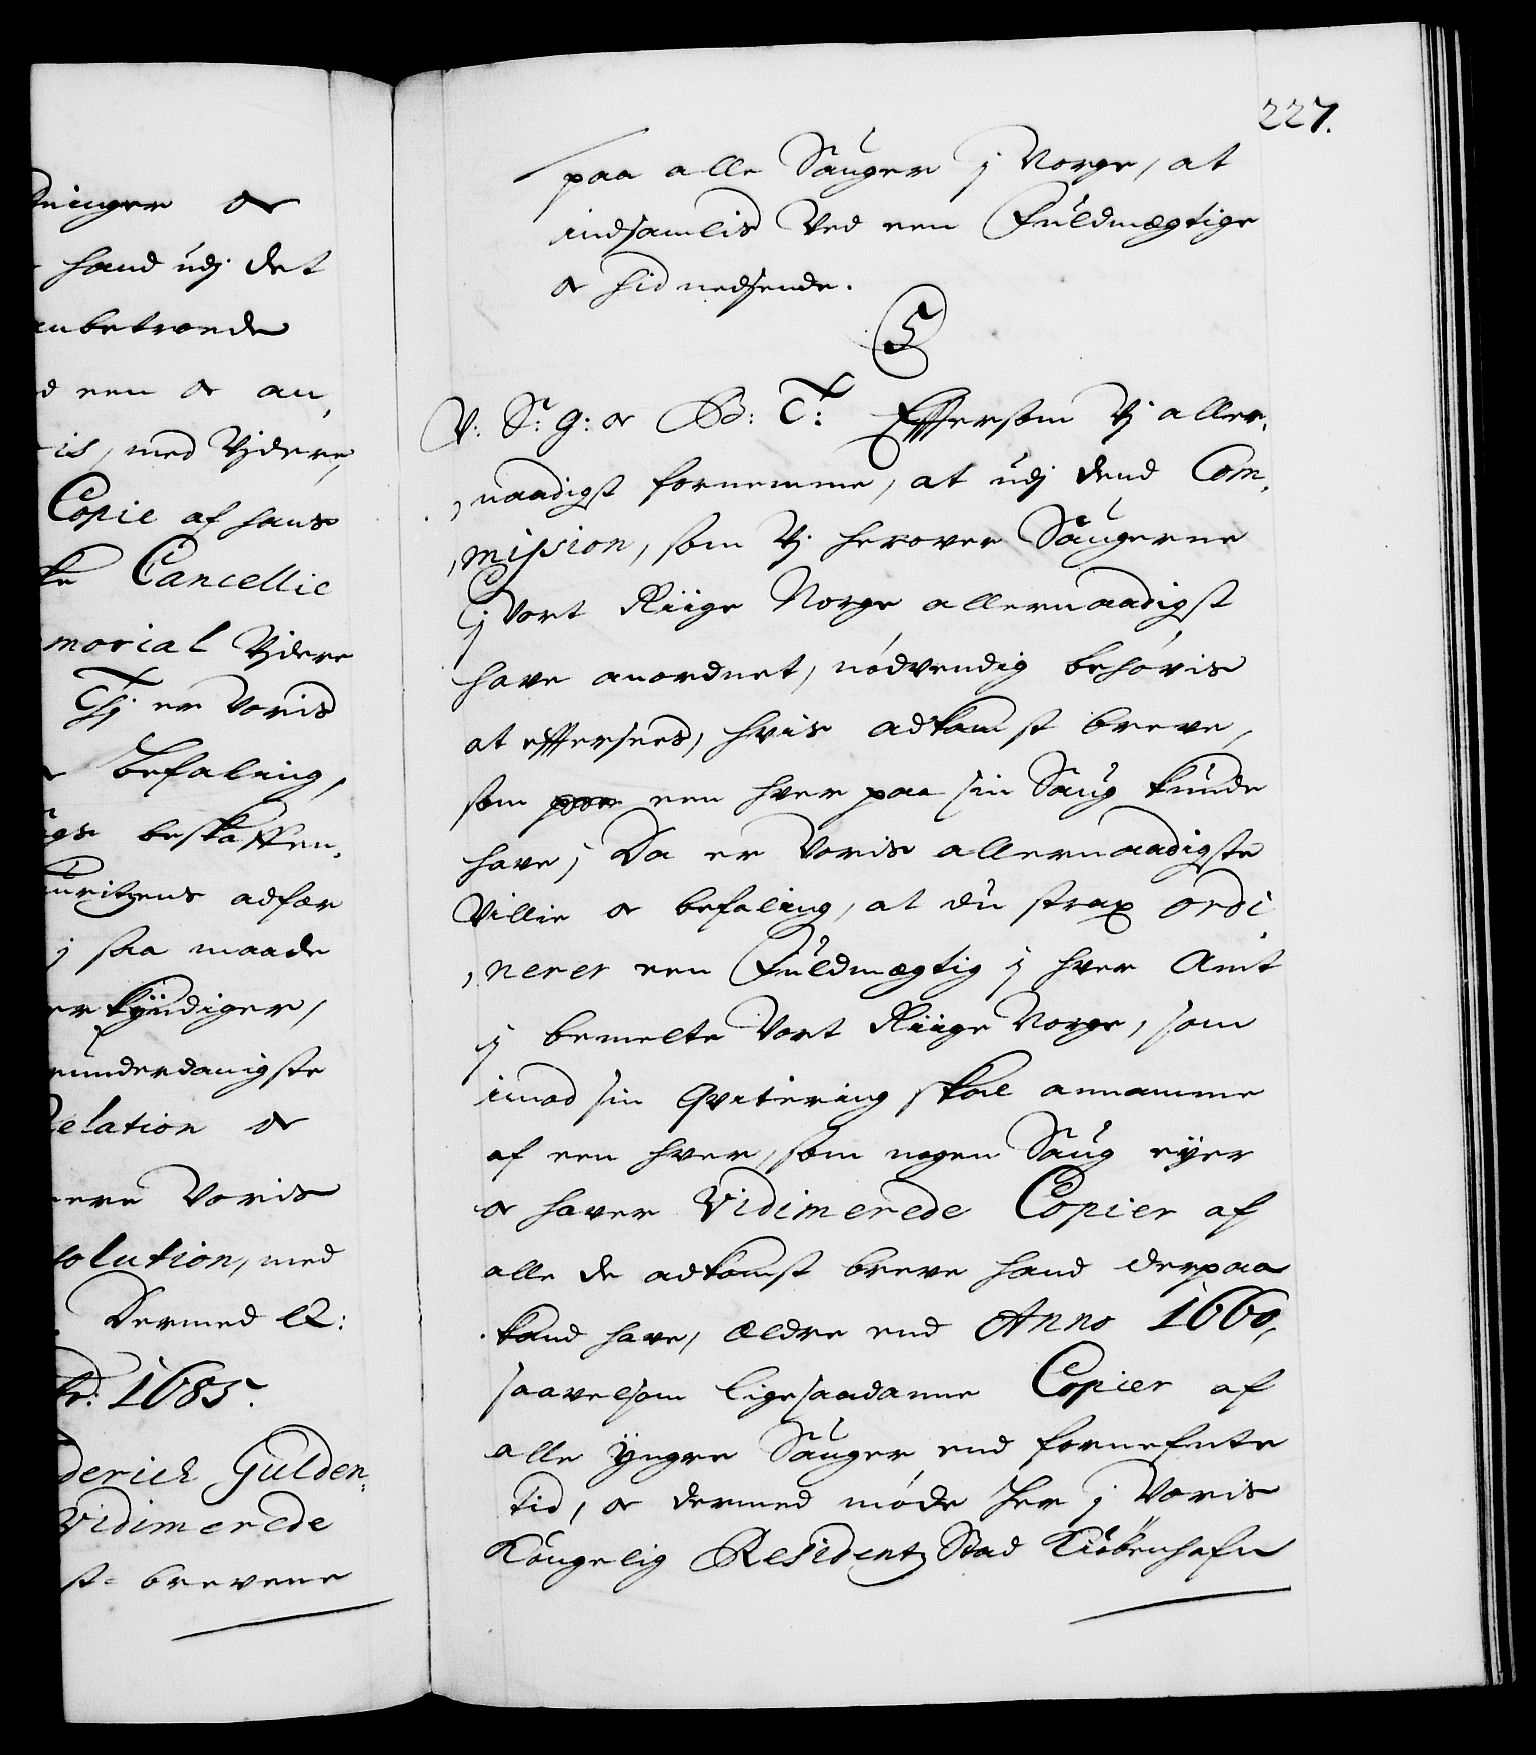 ninger oc
hand udj det
anbetroede
d een oc an,
is, med Vjdere,
Copie af hans
ke Cancellie
morial Vjdere
Thj er Voris
Befaling,
igs beskaffen,
uritzens adfær
j saa maade
erkÿndiger,
underdanigste
Relation oc
ere Voris
solution, med
Dermed &:
br: 1685.
derich Gulden,
Vidimerede
st= brevene
227.
paa alle Sauger j Norge, at
indsamlis Ved een Fuldmægtige
oc hid nedsende.
V: S: G: oc B: T: Effersom Vj aller,
,naadigst fornemme, at udj dend Com,
,mission, som Vj herover Saugerne
j Vort Riige Norge allernaadigst
have anordnet, nödvendig behövis
at effersees, hvis adkomst breve,
som een hver paa sin Saug kunde
have; Da er Voris allernaadigste
Villie oc befaling, at du strax ordi,
,nerer een Fuldmægtig j hver Amt
j bemelte Vort Riige Norge, som
imod sin Qvitering skal annamme
af een hver, som nogen Saug eÿer
oc haver Vidimerede Copier af
alle de adkomst breve hand derpaa
kand have, Ældre end Anno 1660,
saavelsom ligesaadanne Copier af
alle Ÿngre Sauger end fornefnte
tid, oc dermed möde her j Voris
Kongelig Residentz Stad Kiöbenhafn